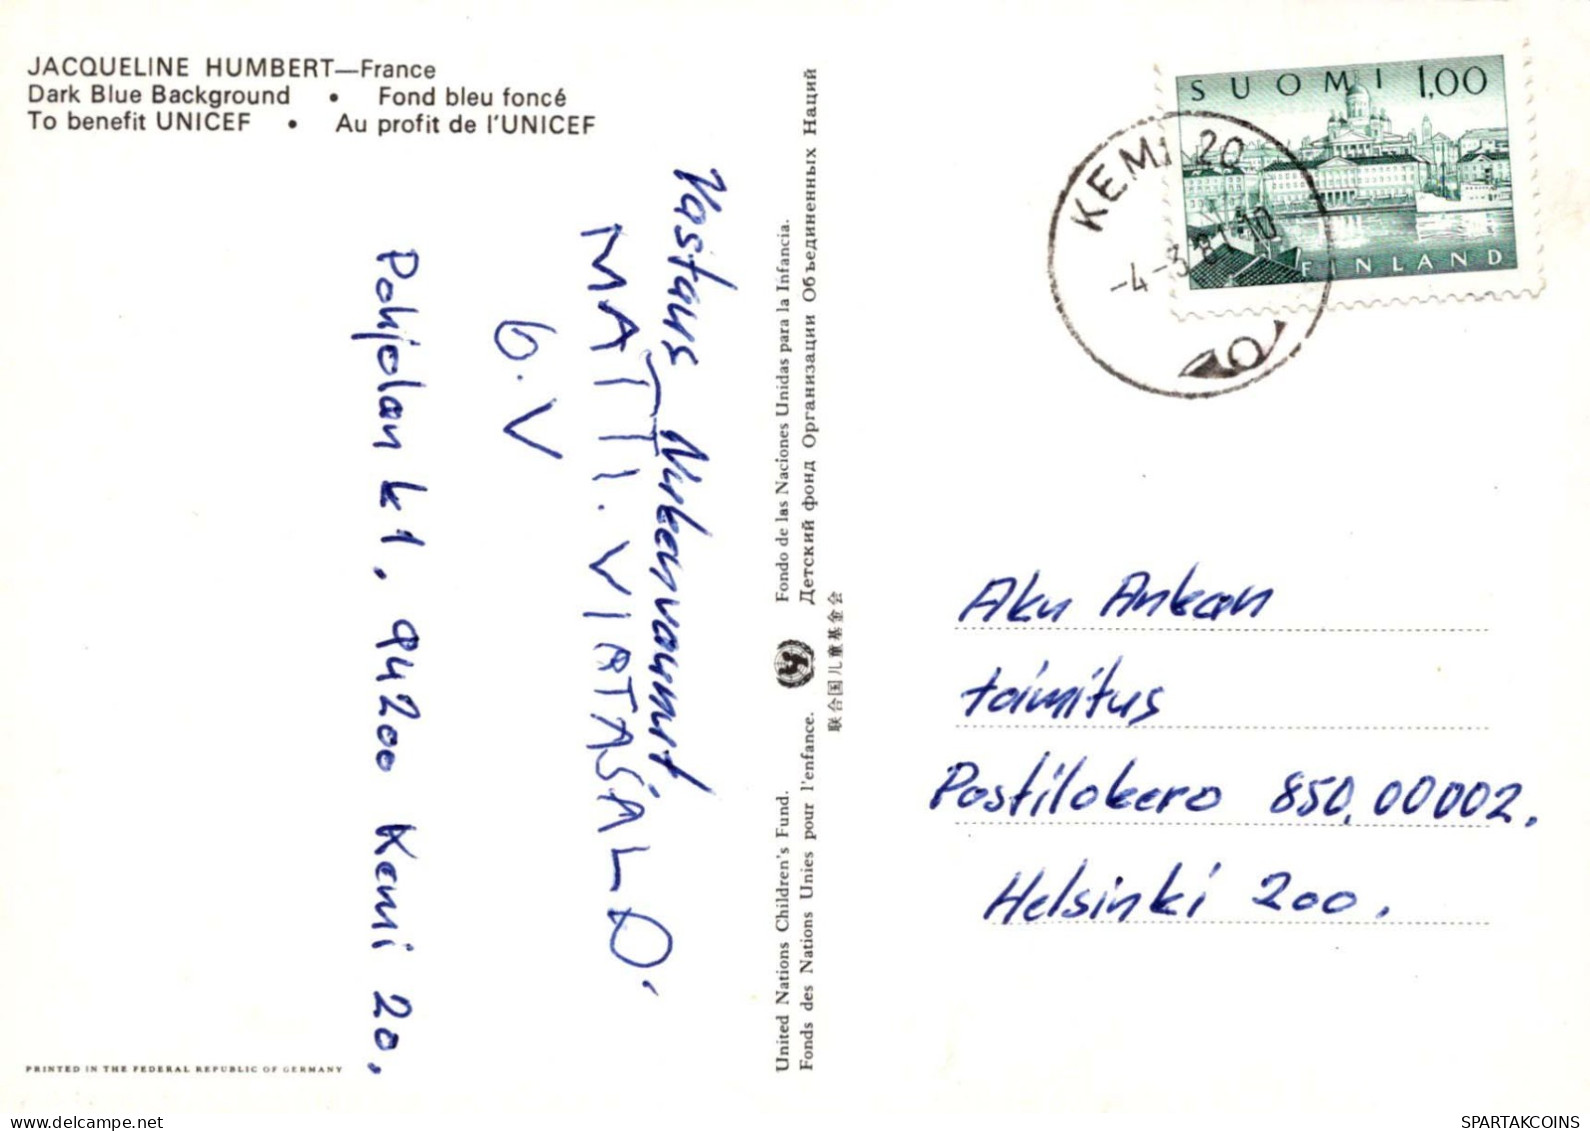 JACQUELINE HUMBERT—France
Dark Blue Background • Fond bleu foncé
To benefit UNICEF • Au profit de l'UNICEF
Vastaus
MATTI. VIATASALO.
6.V
Pohjolan k1. 94200 Kemi 20.
PRINTED IN THE FEDERAL REPUBLIC OF GERMANY
United Nations Children's Fund. Fondo de las Naciones Unidas para la Infancia.
Fonds des Nations Unies pour l'enfance. Детский фонд Организации Объединенных Наций
联合国儿童基金会
SUOMI 1,00
FINLAND
KEMI 20
-4-3.81-10
Aku Ankan
toimitus
Postilokero 850, 00002.
Helsinki 200.
SPARTAKCOINS